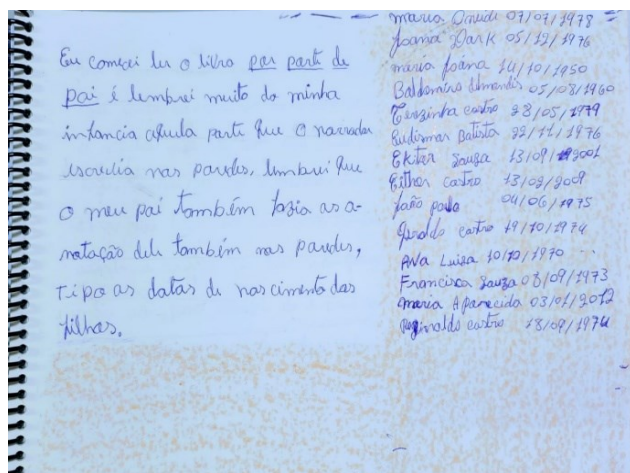 Eu começei ler o livro por parte de
pai é lembrei muito do minha
infancia aquela parte que o narrador
escredia nas paredes, lembrei que
o meu pai também fazia as a-
notação dele também nas paredes,
Tipo as datas de nascimento das
filhas.
maria Oneide 07/07/1978
Joana Dark 05/12/1976
maria Joana 14/10/1950
Baldomiro 05/08/1960
Terezinha castro 28/05/1979
Rudimar Batista 22/11/1976
Souza 13/09/2001
Eithor castro 13/09/2009
João paulo 04/06/1975
Geraldo castro 19/10/1974
Ana Luiza 10/10/1970
Francisca Souza 08/09/1973
maria Aparecida 03/01/2012
Reginaldo castro 18/09/1974